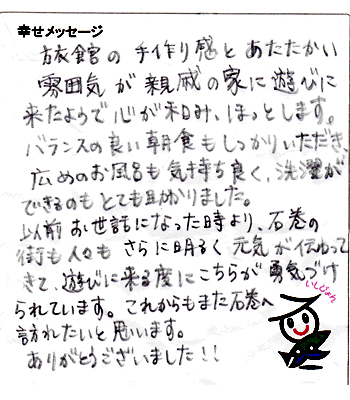 幸せメッセージ
旅館の手作り感とあたたかい
雰囲気が親戚の家に遊びに
来たようで心が和み、ほっとします。
バランスの良い朝食もしっかりいただき、
広めのお風呂も気持ち良く、洗濯が
できるのもとても助かりました。
以前お世話になった時より、石巻の
街も人々もさらに明るく元気が伝わって
きて、遊びに来る度にこちらが勇気づけ
られています。これからもまた石巻へ
訪れたいと思います。
ありがとうございました!!
いしぴょん